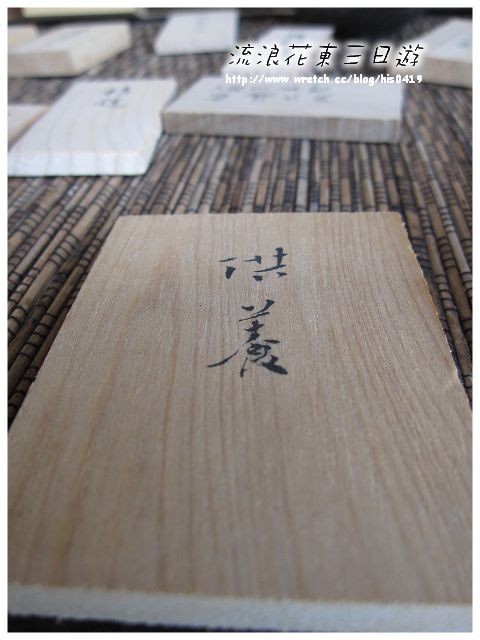 流浪花東三日遊
http://www.wretch.cc/blog/his0419
供
養